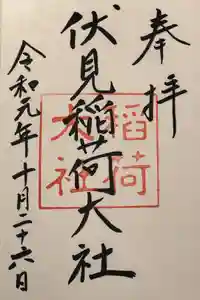 奉拝
伏見稲荷大社
令和元年十月二十六日
稲荷
大社